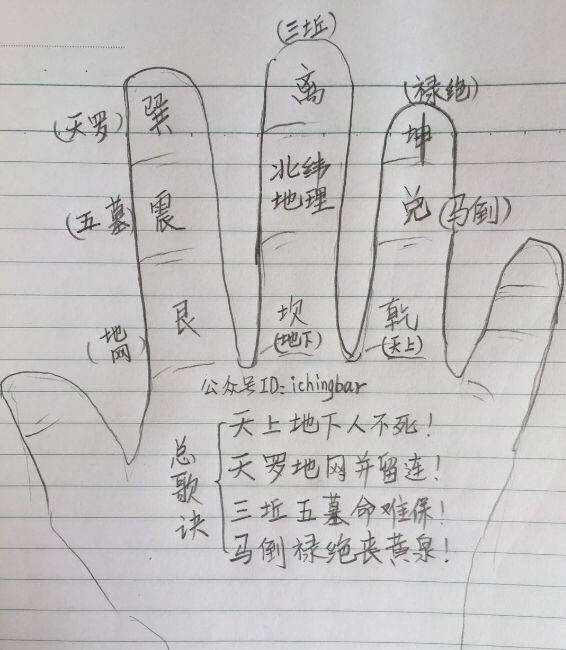 (三坵)
(禄绝)
(天罗) 巽 离 坤
北纬
地理
(五墓) 震 兑 (马倒)
(地网) 艮 坎 乾
(地下) (天上)
公众号ID:ichingbar
总歌诀
天上地下人不死!
天罗地网并留连!
三坵五墓命难保!
马倒禄绝丧黄泉!